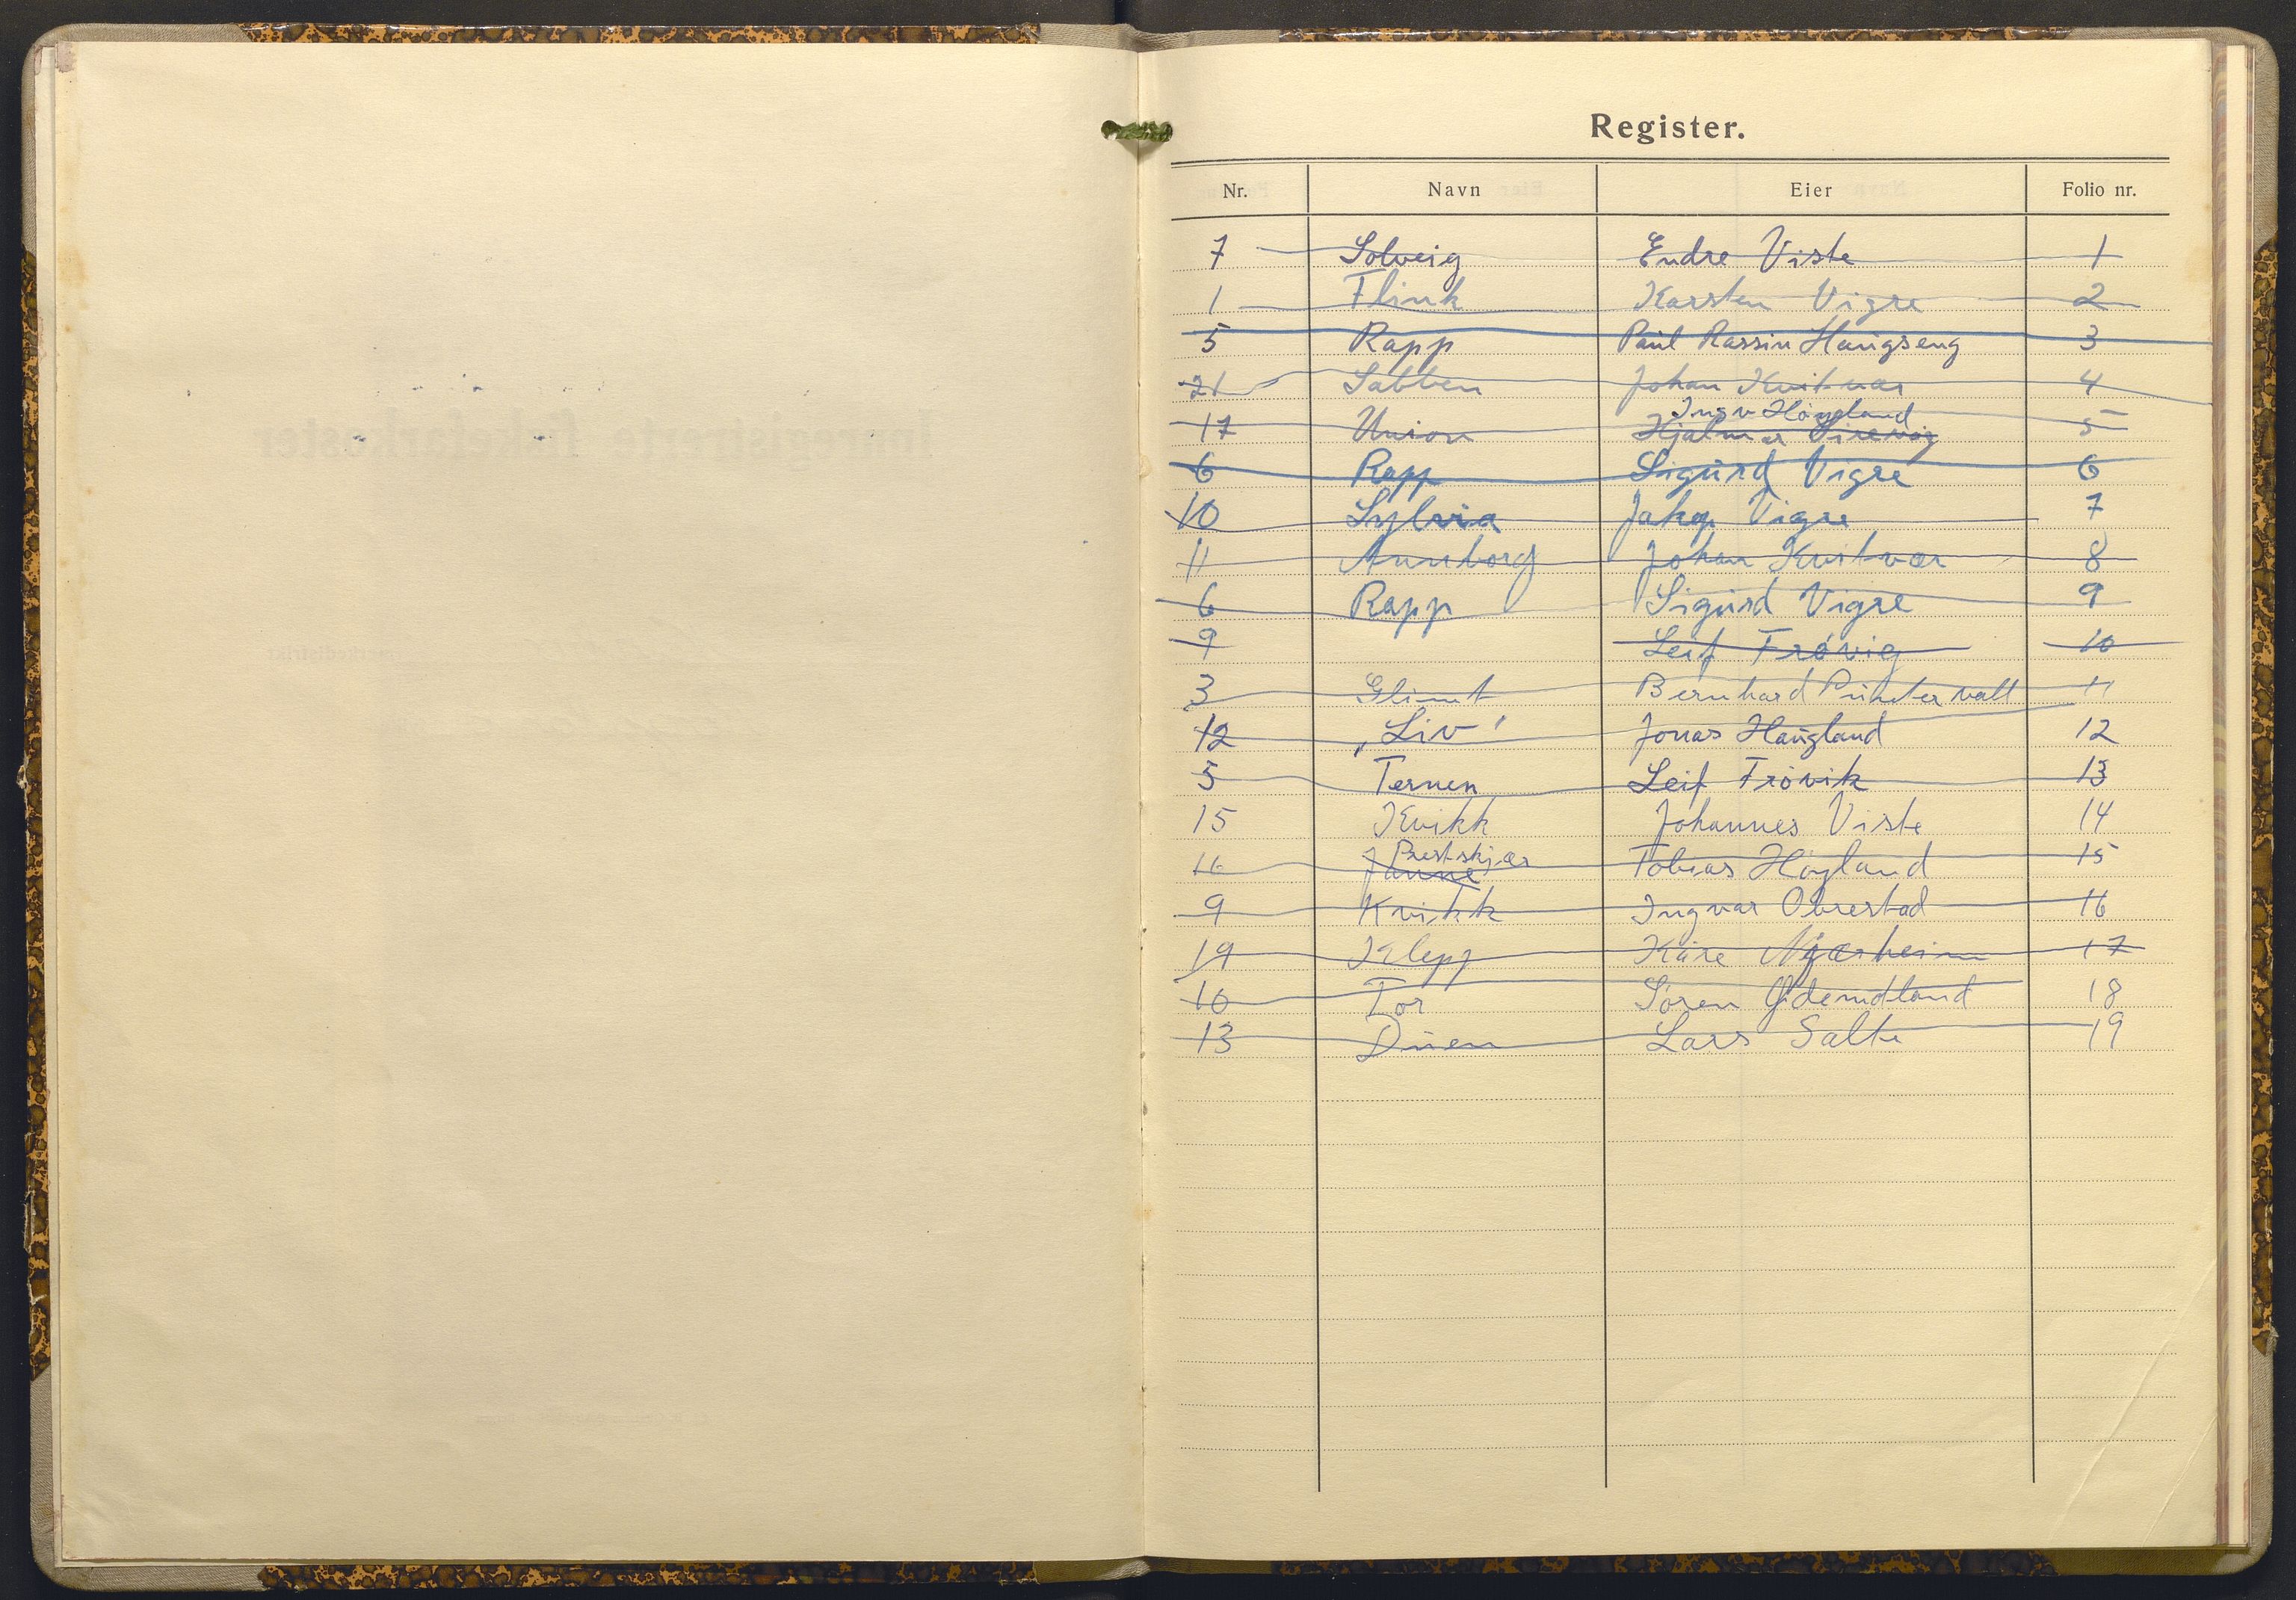 Register.
Nr. Navn Eier Folio nr.
7 Solveig Endre Viste 1
1 Flink Karsten Vigre 2
5 Rapp Paul Rassin Haugseng 3
21 Sabben Johan Kvitvær 4
Ingv Høyland
17 Union Hjalmar Sirevåg 5
6 Rapp Sigurd Vigre 6
10 Sylvia Jakop Vigre 7
11 Annborg Johan Kvitvær 8
6 Rapp Sigurd Vigre 9
9 Leif Frøvig 10
3 Glimt Bernhard 11
12 „Liv" Jonas Haugland 12
5 Ternen Leif Frøvik 13
15 Kvikk Johannes Viste 14
Prestskjær
Janne Tobias Høyland 15
9 Kvikk Ingvar Obrestad 16
19 Klepp Kåre Njærheim 17
16 Tor Søren 18
13 Duen Lars Salte 19
Innregistrerte fiskefarkoster
merkedistrikt